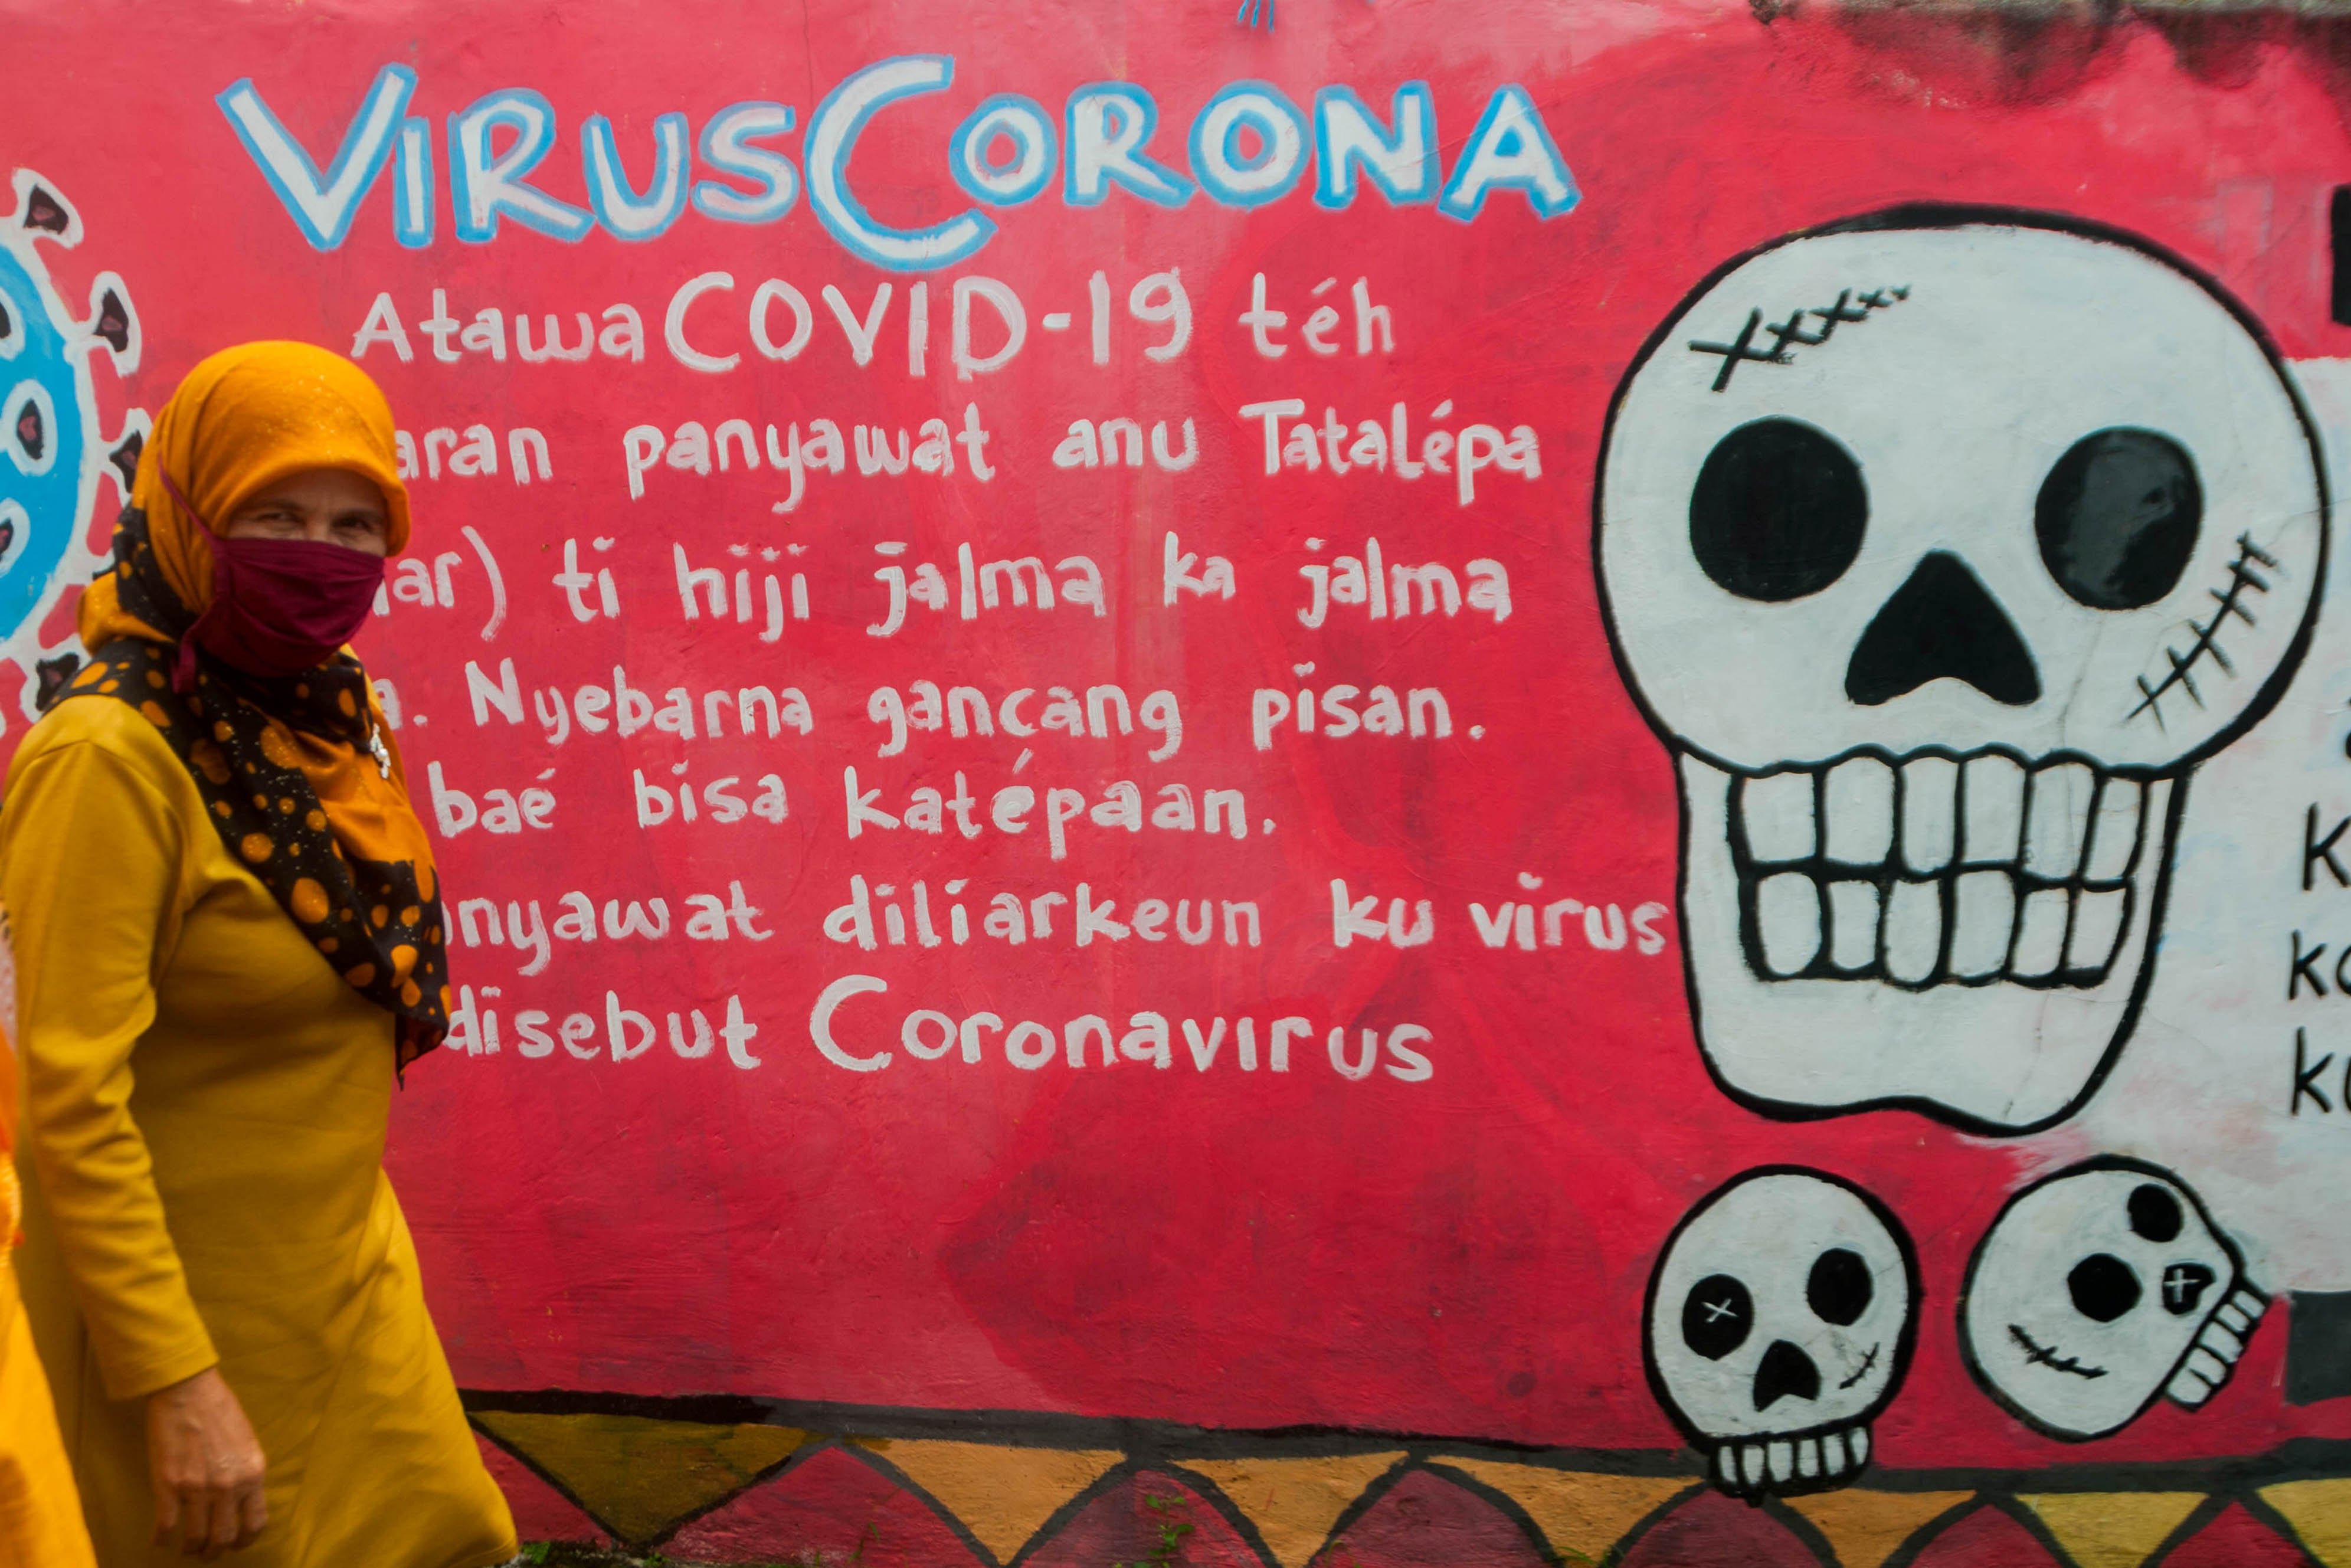 VIRUS CORONA
Atawa COVID-19 téh
panyawat anu Tatalépa
ti hiji jalma ka jalma
Nyebarna gancang pisan.
baé bisa katépaan.
diliarkeun ku virus
disebut Coronavirus